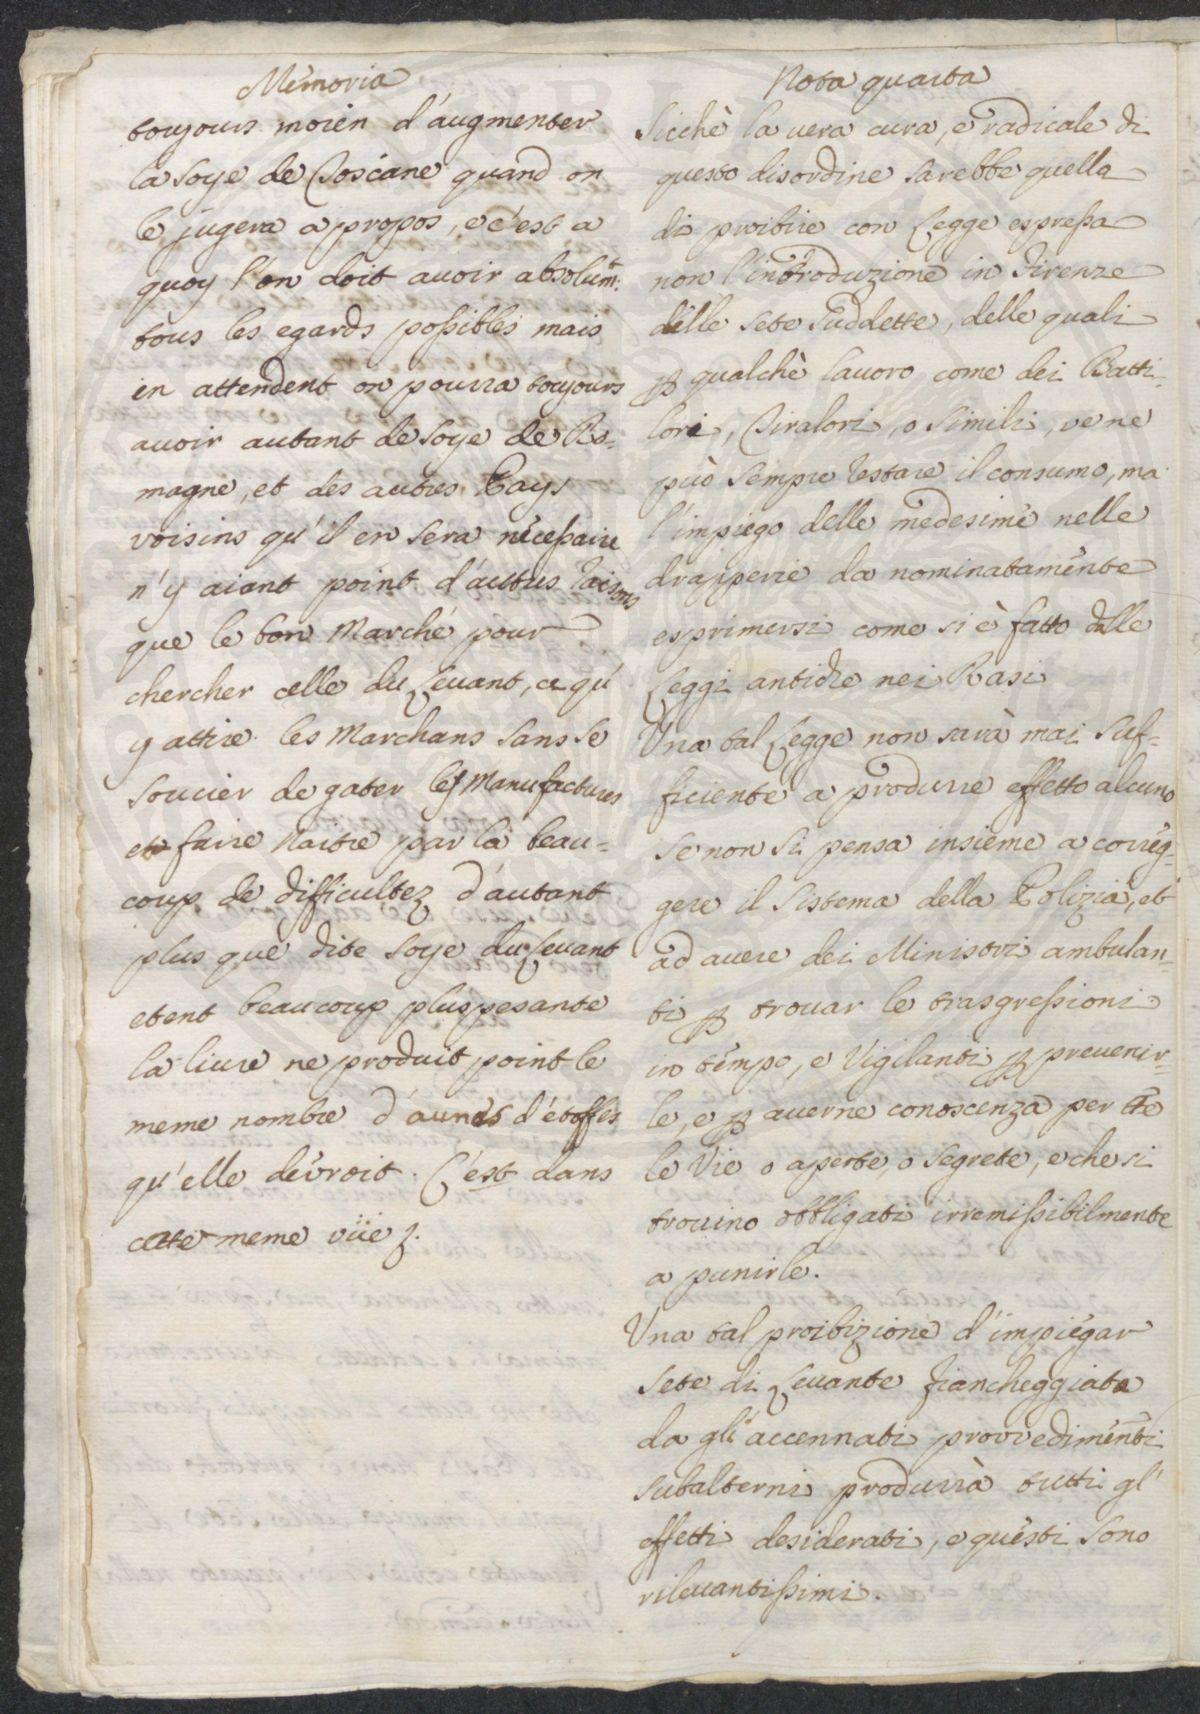 Memoria
toujours moien d'augmenter
la soye de Toscane quand on
le jugera a propos, e c'est a
quoy l'on doit avoir absolum.t
tous les egards possibles mais
en attendent on pourra toujours
avoir autant de soye de Ro=
magne, et des autres Pays
voisins qu'il en sera necessaire
n'y aiant point d'autres raisons
que le bon Marché pour
chercher celle du Levant, ce qu'
y attire les Marchans sans se
soucier de gater les Manufactures
et faire naitre par la beau=
coup de difficultez d'autant
plus que dite soye du Levant
etent beaucoup plus pesante
la livre ne produit point le
meme nombre d'aunes d'étoffes
qu'elle devroit. C'est dans
cette meme vüe
Nota quarta
Sicchè la vera cura, e radicale di
questo disordine sarebbe quella
di proibire con Legge espressa
non l'introduzione in Firenze
delle sete suddette, delle quali
p qualchè lavoro come dei Batti=
lori, Tiralori, o simili, ve ne
può sempre restare il consumo, ma
l'impiego delle medesime nelle
drapperie da nominatamente
esprimersi come si è fatto dalle
Leggi antiche nei Rasi
Una tal Legge non sarà mai suf=
ficiente a produrre effetto alcuno
se non si pensa insieme a correg=
gere il sistema della Polizia, et
ad avere dei Ministri ambulan=
ti p trovar le trasgressioni
in tempo, e Vigilanti p prevenir=
le, e p averne conoscenza per tte
le Vie o aperte, o segrete, e che si
trovino obbligati irremissibilmente
a punirle.
Una tal proibizione d'impiegar
sete di Levante fiancheggiata
da gli accennati provvedimenti
subalterni produrrà tutti gl'
effetti desiderati, e questi sono
rilevantissimi.